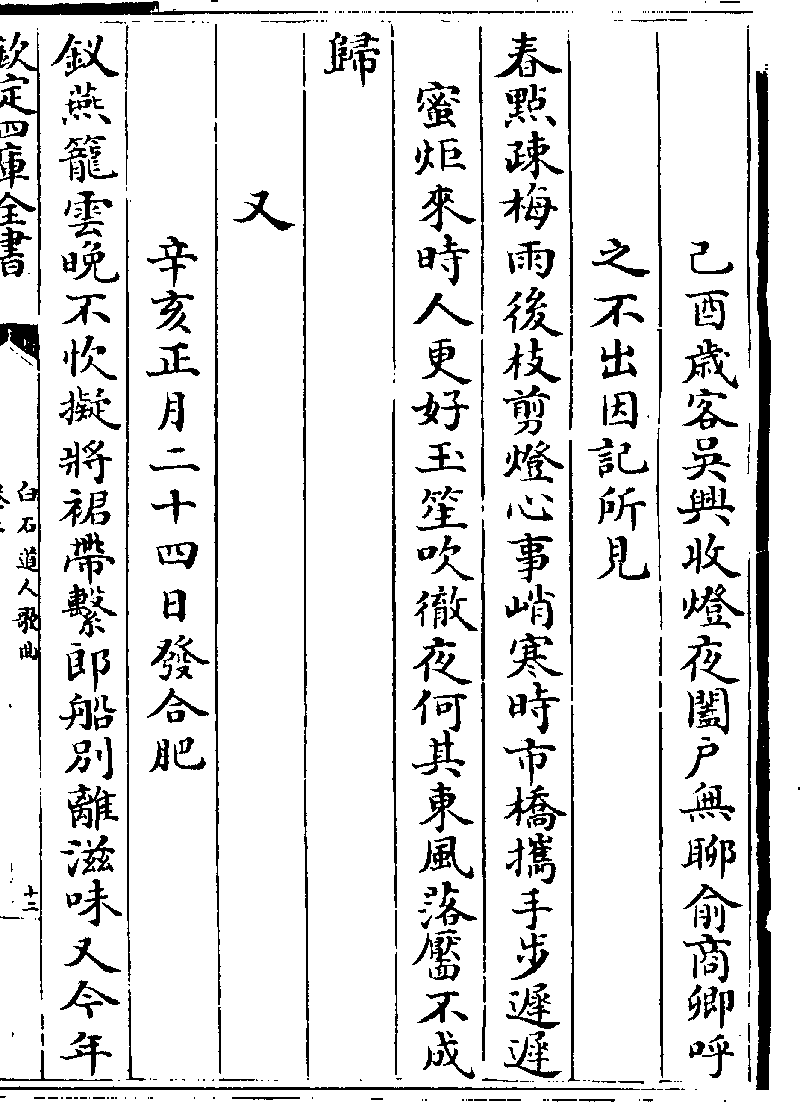 己酉歲客吳興收燈夜闔户無聊俞商卿呼
之不出因記所見
春點疎梅雨後枝剪燈心事峭寒時市橋攜手步遲遲
蜜炬來時人更好玉笙吹徹夜何其東風落靨不成
歸
又
辛亥正月二十四日發合肥
釵燕籠雲晚不忺擬將裙帶繫郎船別離滋味又今年
欽定四庫全書
白石道人歌曲
十二